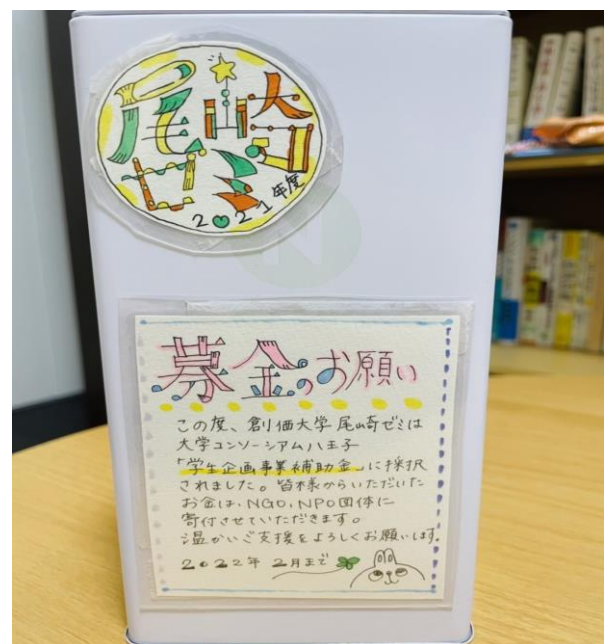 尾崎
ゼミ
2021年度
募金のお願い
この度、創価大学 尾崎ゼミは
大学コンソーシアム八王子
「学生企画事業補助金」に採択
されました。皆様からいただいた
お金は、NGO、NPO団体に
寄付させていただきます。
温かいご支援をよろしくお願いします。
2022年 2月まで